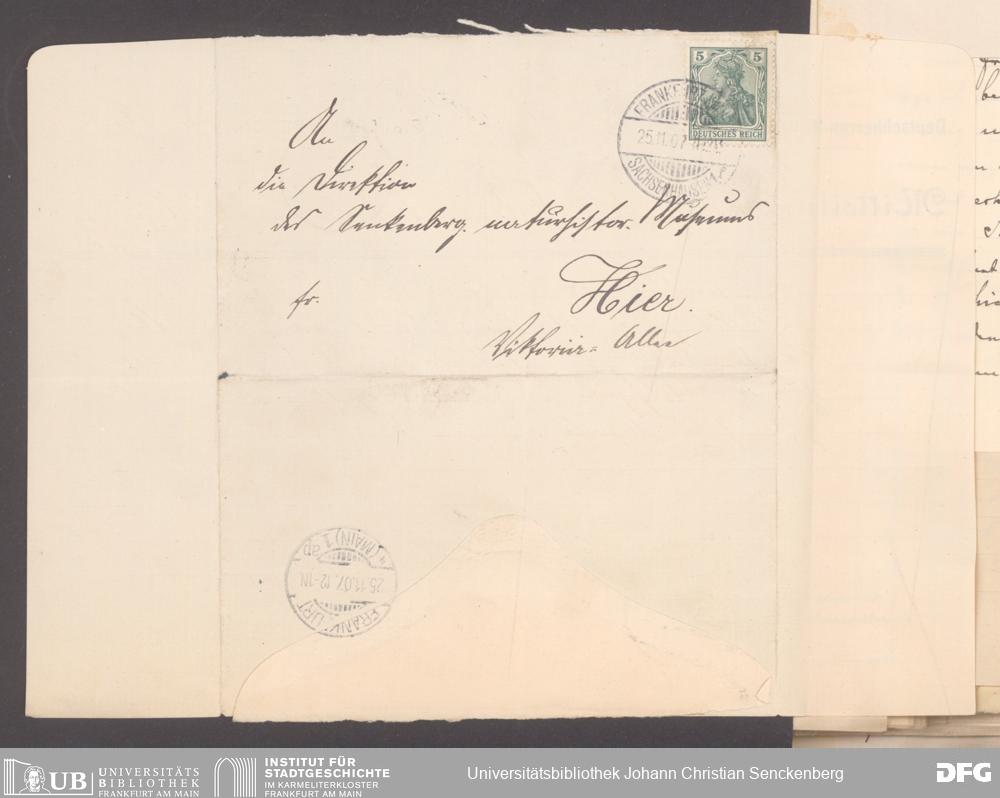 An
die Direktion
des Senkenberg. naturhistor. Museums
Hier.
fr.
Viktoria= Allee
5 5
DEUTSCHES REICH
FRANKFURT
25.11.07
SACHSENHAUSEN
FRANKFURT
25.11.07. 12-1N.
(MAIN) 1
UB UNIVERSITÄTS
BIBLIOTHEK
FRANKFURT AM MAIN
INSTITUT FÜR
STADTGESCHICHTE
IM KARMELITERKLOSTER
FRANKFURT AM MAIN
Universitätsbibliothek Johann Christian Senckenberg
DFG